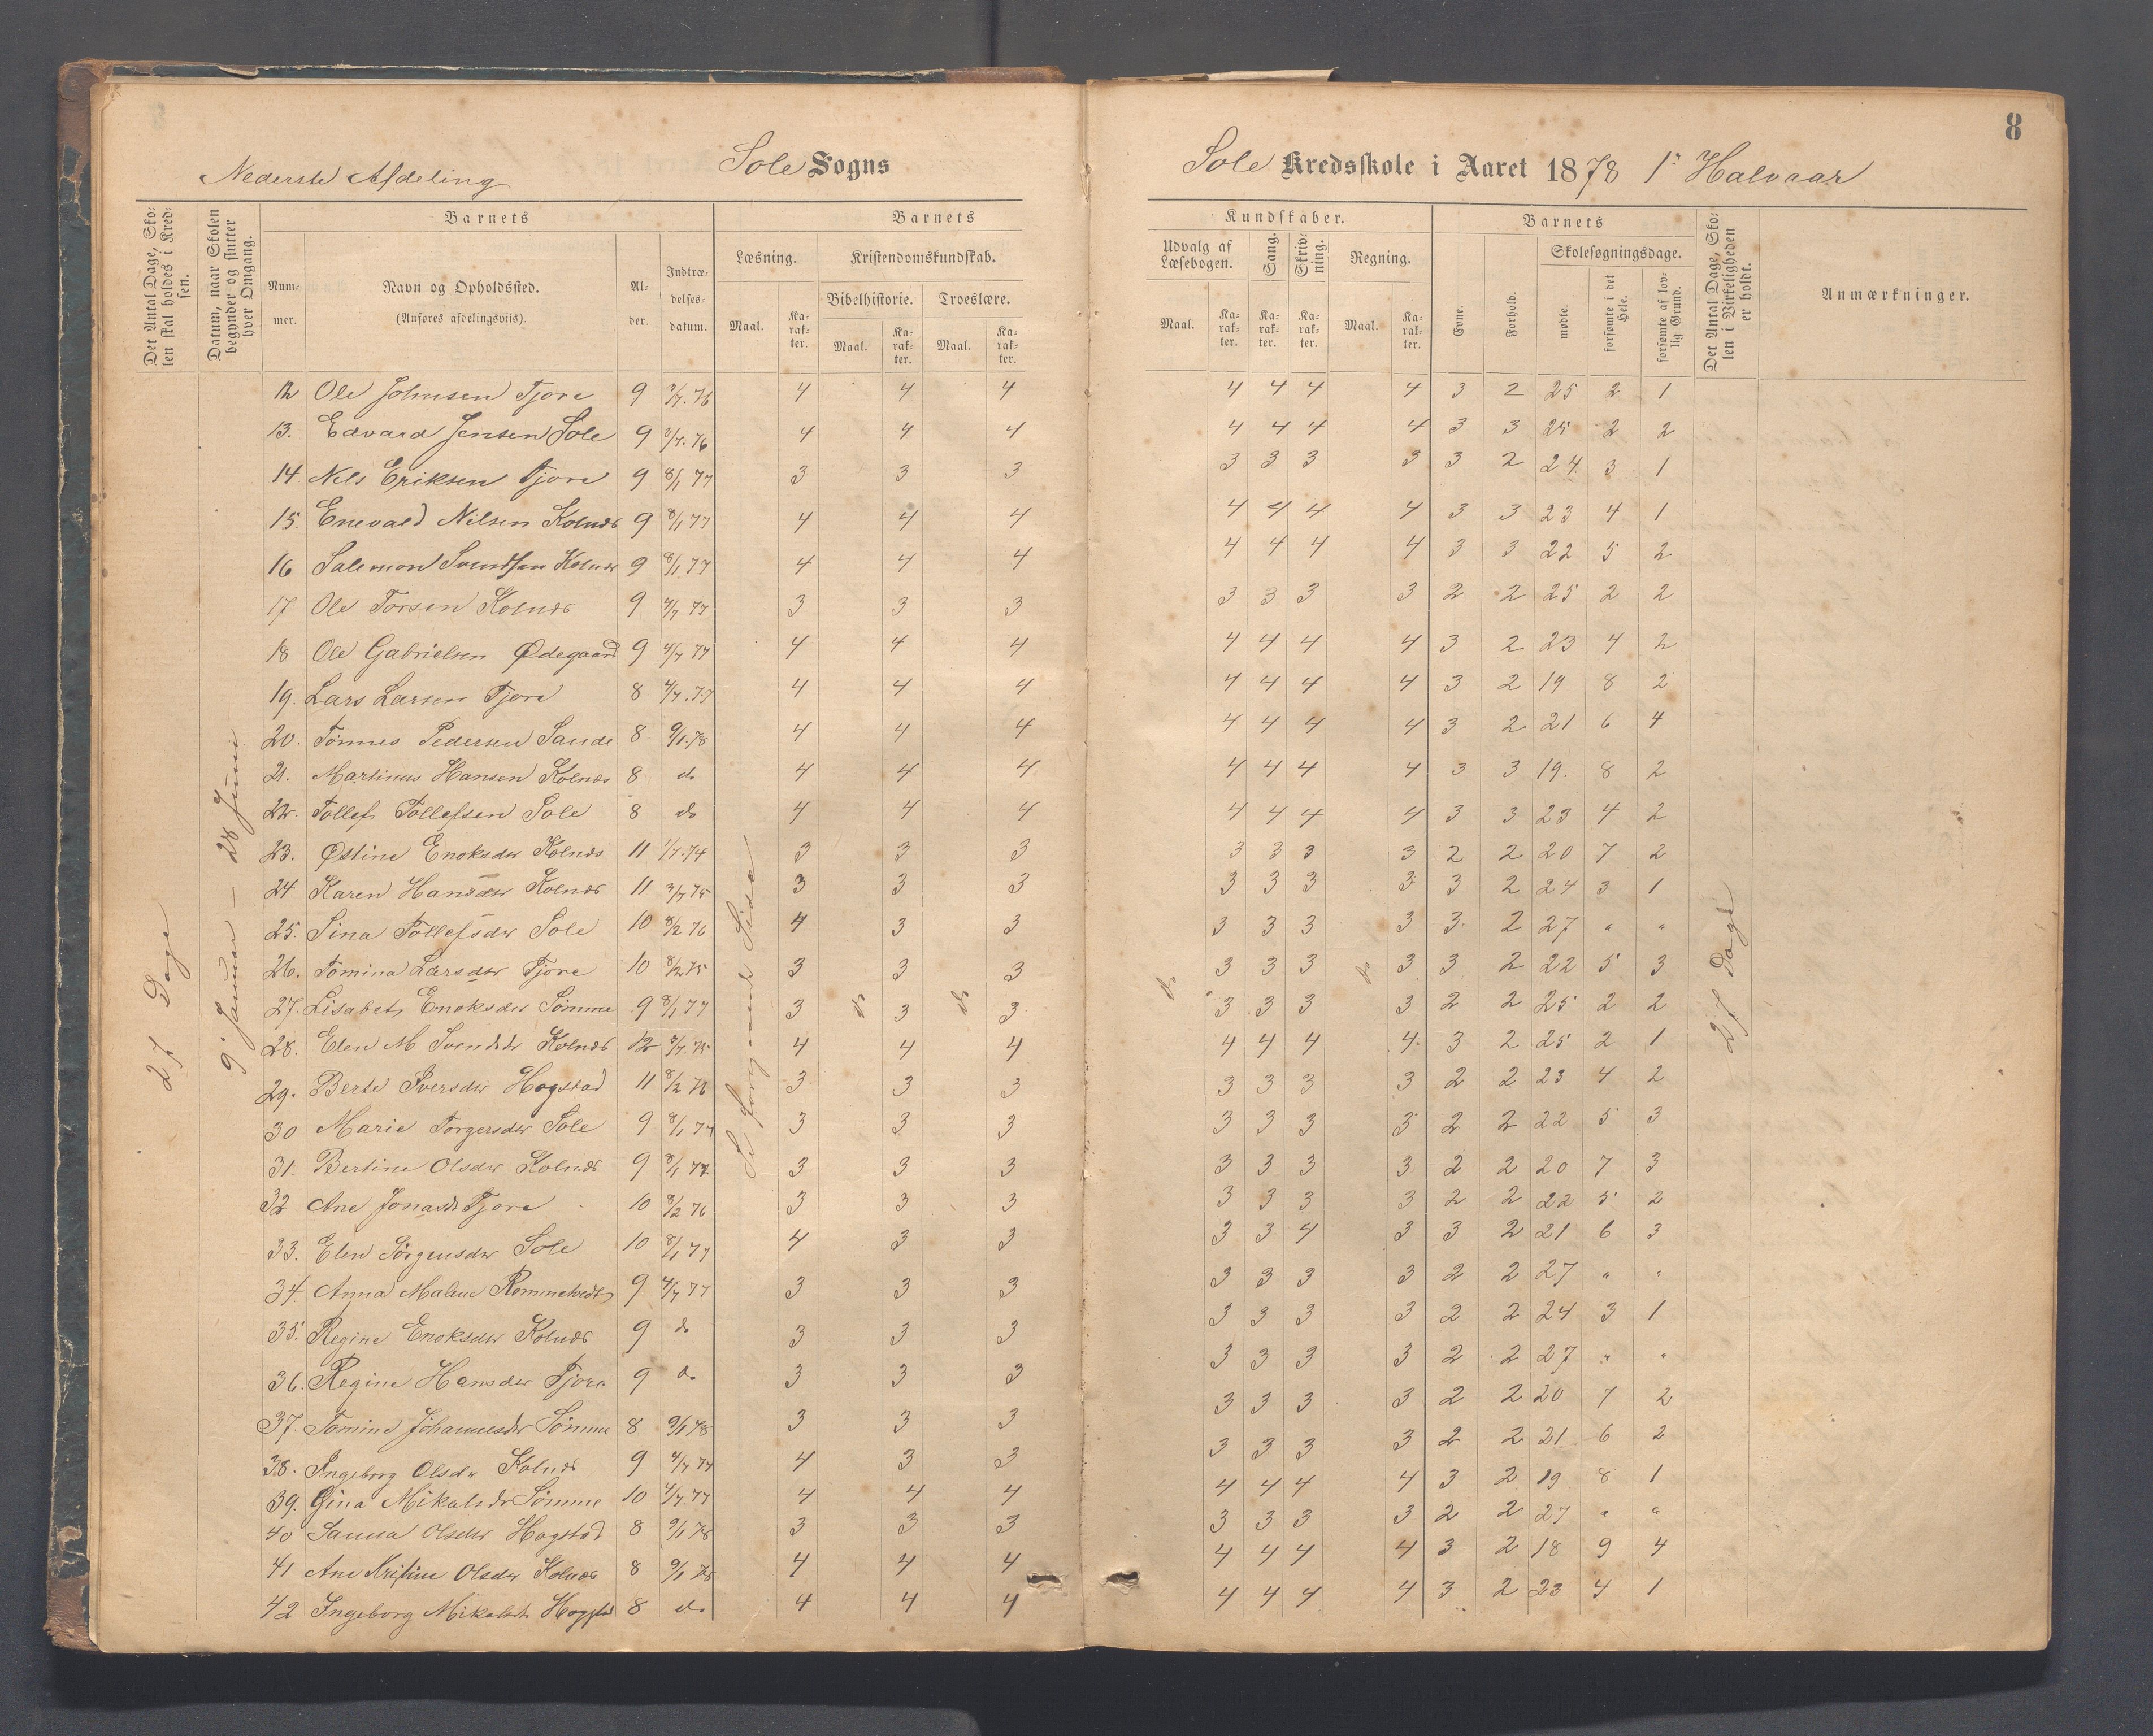 8
Nederste Afdeling
Sole Sogns
Sole Kredsskole i Aaret 1878 1ste Halvaar
Det Antal Dage, Skolen skal holdes i Kredsen.
Datum, naar Skolen begynder og slutter hver Omgang.
Barnets
Nummer.
Navn og Opholdssted.
(Anføres afdelingsviis).
Alder.
Indtrædelsesdatum.
Barnets
Læsning.
Kristendomskundskab.
Bibelhistorie.
Troeslære.
Maal.
Karakter.
Maal.
Karakter.
Maal.
Karakter.
Kundskaber.
Udvalg af Læsebogen.
Sang.
Skrivning.
Regning.
Maal.
Karakter.
Karakter.
Karakter.
Maal.
Karakter.
Barnets
Evne.
Forhold.
Skolesøgningsdage.
mødte.
forsømte i det Hele.
forsømte af lovlig Grund.
Det Antal Dage, Skolen i Virkeligheden er holdt.
Anmærkninger.
27 Dage
9. Januar - 28 Juni
Se foregaaende Side
do
do
do
do
27 Dage
12 Ole Johnsen Tjore 9 3/7.76 4 4 4 4 4 4 4 3 2 25 2 1
13. Edvard Jensen Sole 9 3/7.76 4 4 4 4 4 4 4 3 3 25 2 2
14. Nels Eriksen Tjore 9 8/1 77 3 3 3 3 3 3 3 3 2 24. 3 1
15. Enevald Nilsen Kolnes 9 8/1 77 4 4 4 4 4 4 4 3 3 23 4 1
16 Salemon Svendsen Kolnes 9 8/1 77 4 4 4 4 4 4 4 3 3 22 5 2
17 Ole Torsen Kolnes 9 4/7 77 3 3 3 3 3 3 3 2 2 25 2 2
18 Ole Gabrielsen Ødegaard 9 4/7 77 4 4 4 4 4 4 4 3 2 23 4 2
19. Lars Larsen Tjore 8 4/7.77 4 4 4 4 4 4 4 3 2 19 8 2
20. Tönnes Pedersen Sande 8 9/1.78 4 4 4 4 4 4 4 3 2 21 6 4
21. Martinus Hansen Kolnes 8 do 4 4 4 4 4 4 4 3 3 19. 8 2
22. Tollef Tollefsen Sole 8 do 4 4 4 4 4 4 4 3 3 23 4 2
23. Østine Enoksdtr Kolnes 11 1/7.74 3 3 3 3 3 3 3 2 2 20 7 2
24 Karen Hansdtr Kolnes 11 3/7 75 3 3 3 3 3 3 3 3 2 24 3 1
25. Sina Tollefsdtr Sole 10 8/2 76 4 3 3 3 3 3 3 3 2 27 " "
26. Tomina Larsdtr Tjore 10 8/2 75 3 3 3 3 3 3 3 3 2 22 5 3
27. Lisabet Enoksdtr Sömme 9 8/1 77 3 3 3 3 3 3 3 2 2 25 2 2
28. Elen M Svendsdtr Kolnes 12 3/7.75 4 4 4 4 4 4 4 3 2 25 2 1
29. Berte Iversdtr Hogstad 11 8/2 76 3 3 3 3 3 3 3 2 2 23 4 2
30 Marie Torgersdtr Sole 9 8/1 77 3 3 3 3 3 3 3 2 2 22 5 3
31. Bertine Olsdtr Kolnes 9 8/1 77 3 3 3 3 3 3 3 2 2 20 7 3
32 Ane Jonasdtr Tjore 10 8/2 76 3 3 3 3 3 3 3 2 2 22 5 2
33. Elen Sörgensdtr Sole 10 8/1 77 4 3 3 3 3 4 3 3 2 21 6 3
34. Anna Malene Rommetvedt 9 4/7 77 3 3 3 3 3 3 3 2 2 27 " "
35. Regine Enoksdtr Kolnes 9 do 3 3 3 3 3 3 3 2 2 24 3 1
36. Regine Hansdtr Tjore 9 do 3 3 3 3 3 3 3 2 2 27 " "
37. Tomine Johannesdtr Sömme 8 9/1 78 3 3 3 3 3 3 3 2 2 20 7 2
38. Ingeborg Olsdtr Kolnes 9 4/7 77 4 3 3 3 3 3 3 2 2 21 6 2
39. Gina Mikalsdtr Sömme 10 4/7.77 4 4 4 4 4 4 4 3 2 19 8 1
40 Sanna Olsdtr Hogstad 8 9/1 78 3 3 3 3 3 3 3 2 2 27 " "
41 Ane Kristine Olsdtr Kolnes 8 9/1 78 4 4 4 4 4 4 4 3 2 18 9 4
42 Ingeborg Mikalsdtr Hogstad 8 do 4 4 4 4 4 4 4 3 2 23 4 1